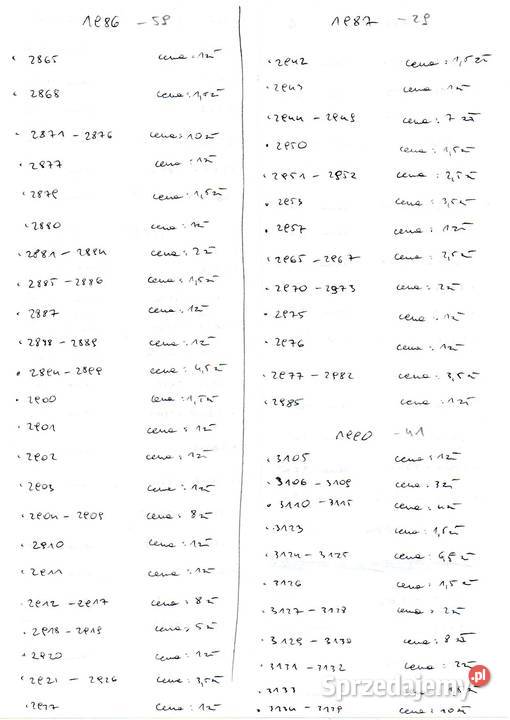 1986 - 59
• 2865 cena: 1zł
• 2868 cena: 1,5zł
• 2871 - 2876 cena: 10zł
• 2877 cena: 1zł
• 2879 cena: 1,5zł
2880 cena: 1zł
• 2881 - 2884 cena: 2zł
• 2885 - 2886 cena: 1,5zł
• 2887 cena: 1zł
• 2888 - 2889 cena: 1zł
• 2894 - 2899 cena: 4,5zł
• 2900 cena: 1,5zł
• 2901 cena: 1zł
• 2902 cena: 1zł
• 2903 cena: 1zł
• 2904 - 2909 cena: 8zł
• 2910 cena: 1zł
• 2911 cena: 1zł
• 2912 - 2917 cena: 8zł
• 2918 - 2919 cena: 5zł
• 2920 cena: 1zł
• 2921 - 2926 cena: 3,5zł
cena: 1zł
1987 - 29
• 2942 cena: 1,5zł
• 2943 cena: 1zł
• 2944 - 2949 cena: 7zł
• 2950 cena: 1,5zł
• 2951 - 2952 cena: 2,5zł
• 2953 cena: 3,5zł
• 2957 cena: 1zł
• 2965 - 2967 cena: 2,5zł
• 2970 - 2973 cena: 2zł
• 2975 cena: 1zł
• 2976 cena: 1zł
• 2977 - 2982 cena: 3,5zł
• 2985 cena: 1zł
1990 - 41
• 3105 cena: 1zł
• 3106 - 3109 cena: 3zł
• 3110 - 3115 cena: 4zł
• 3123 cena: 1,5zł
• 3124 - 3125 cena: 6,5zł
• 3126 cena: 1,5zł
• 3127 - 3128 cena: 2zł
• 3129 - 3130 cena: 8zł
• 3131 - 3132 cena: 2zł
• 3133
• 3134 - 3139 cena: 10zł
Sprzedajemy.pl